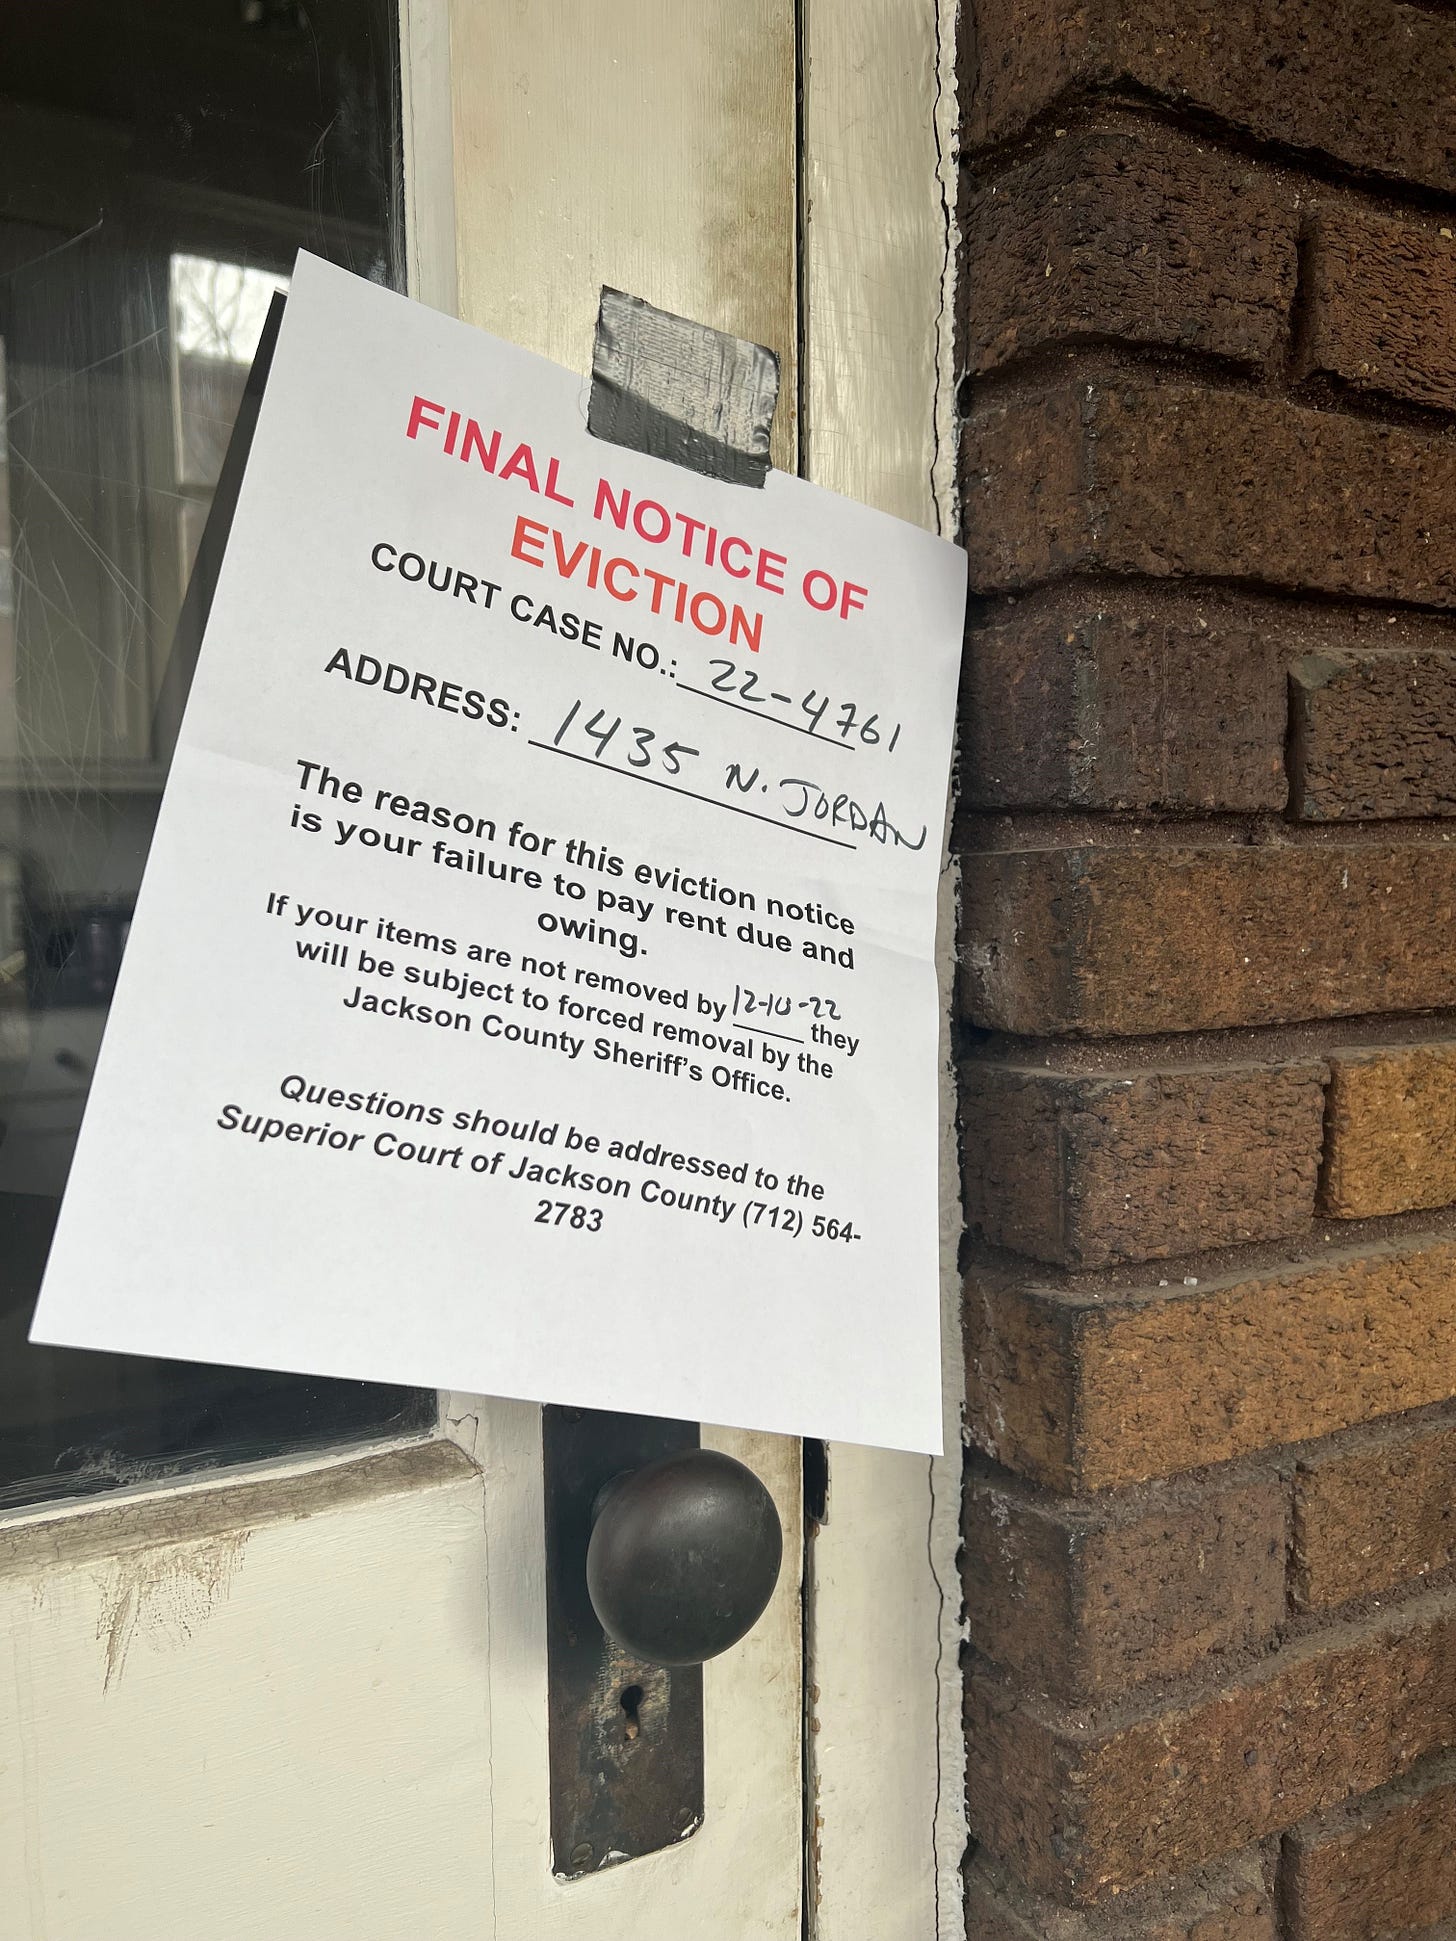 FINAL NOTICE OF
EVICTION
COURT CASE NO.: 22-4761
ADDRESS: 1435 N. JORDAN
The reason for this eviction notice
is your failure to pay rent due and
owing.
If your items are not removed by 12-10-22 they
will be subject to forced removal by the
Jackson County Sheriff's Office.
Questions should be addressed to the
Superior Court of Jackson County (712) 564-
2783